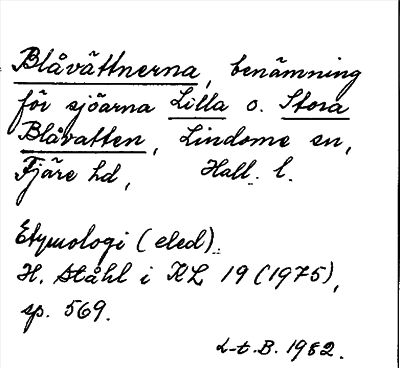 Blåvättnerna, benämning
för sjöarna Lilla o. Stora
Blåvatten, Lindome sn,
Fjäre hd, Hall. l.
Etymologi (eled).
H. Ståhl i KL 19 (1975),
sp. 569.
L-t. B. 1982.